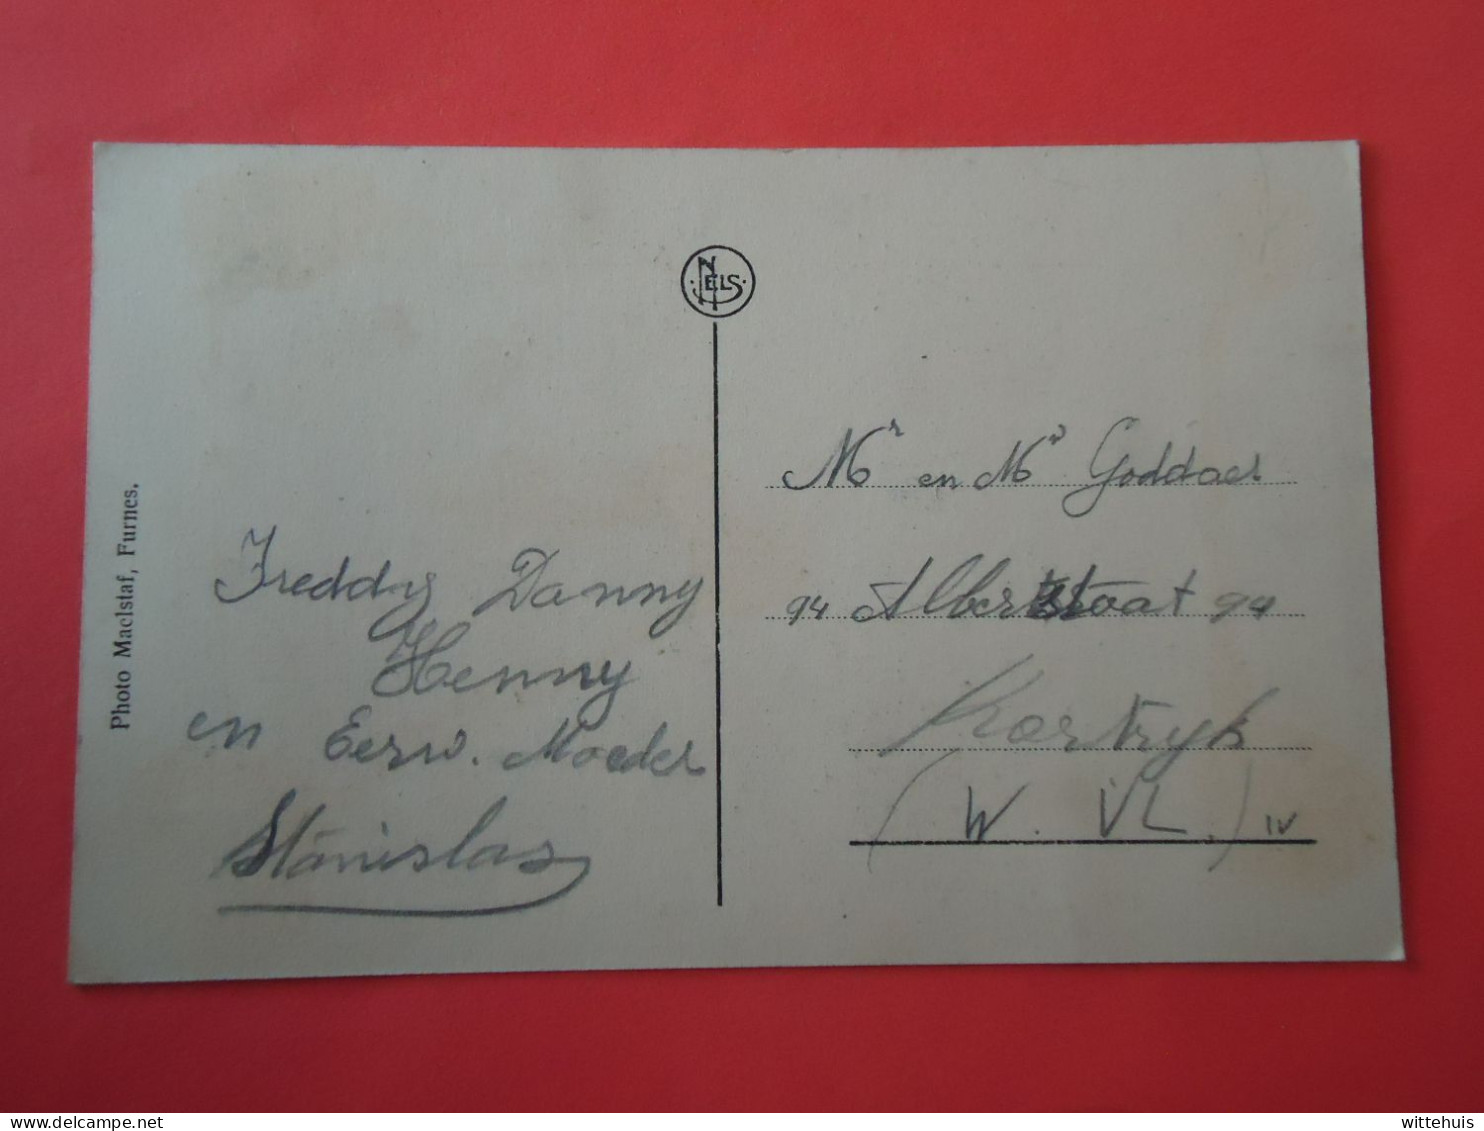 Photo Maelstaf, Furnes.
NELS
Freddy Danny
Henny
en Eerw. Moeder
Stanislas
Mr en Mr Goddaer
94 Albertstraat 94
Kortryk
(W. VL.)
wittehuis